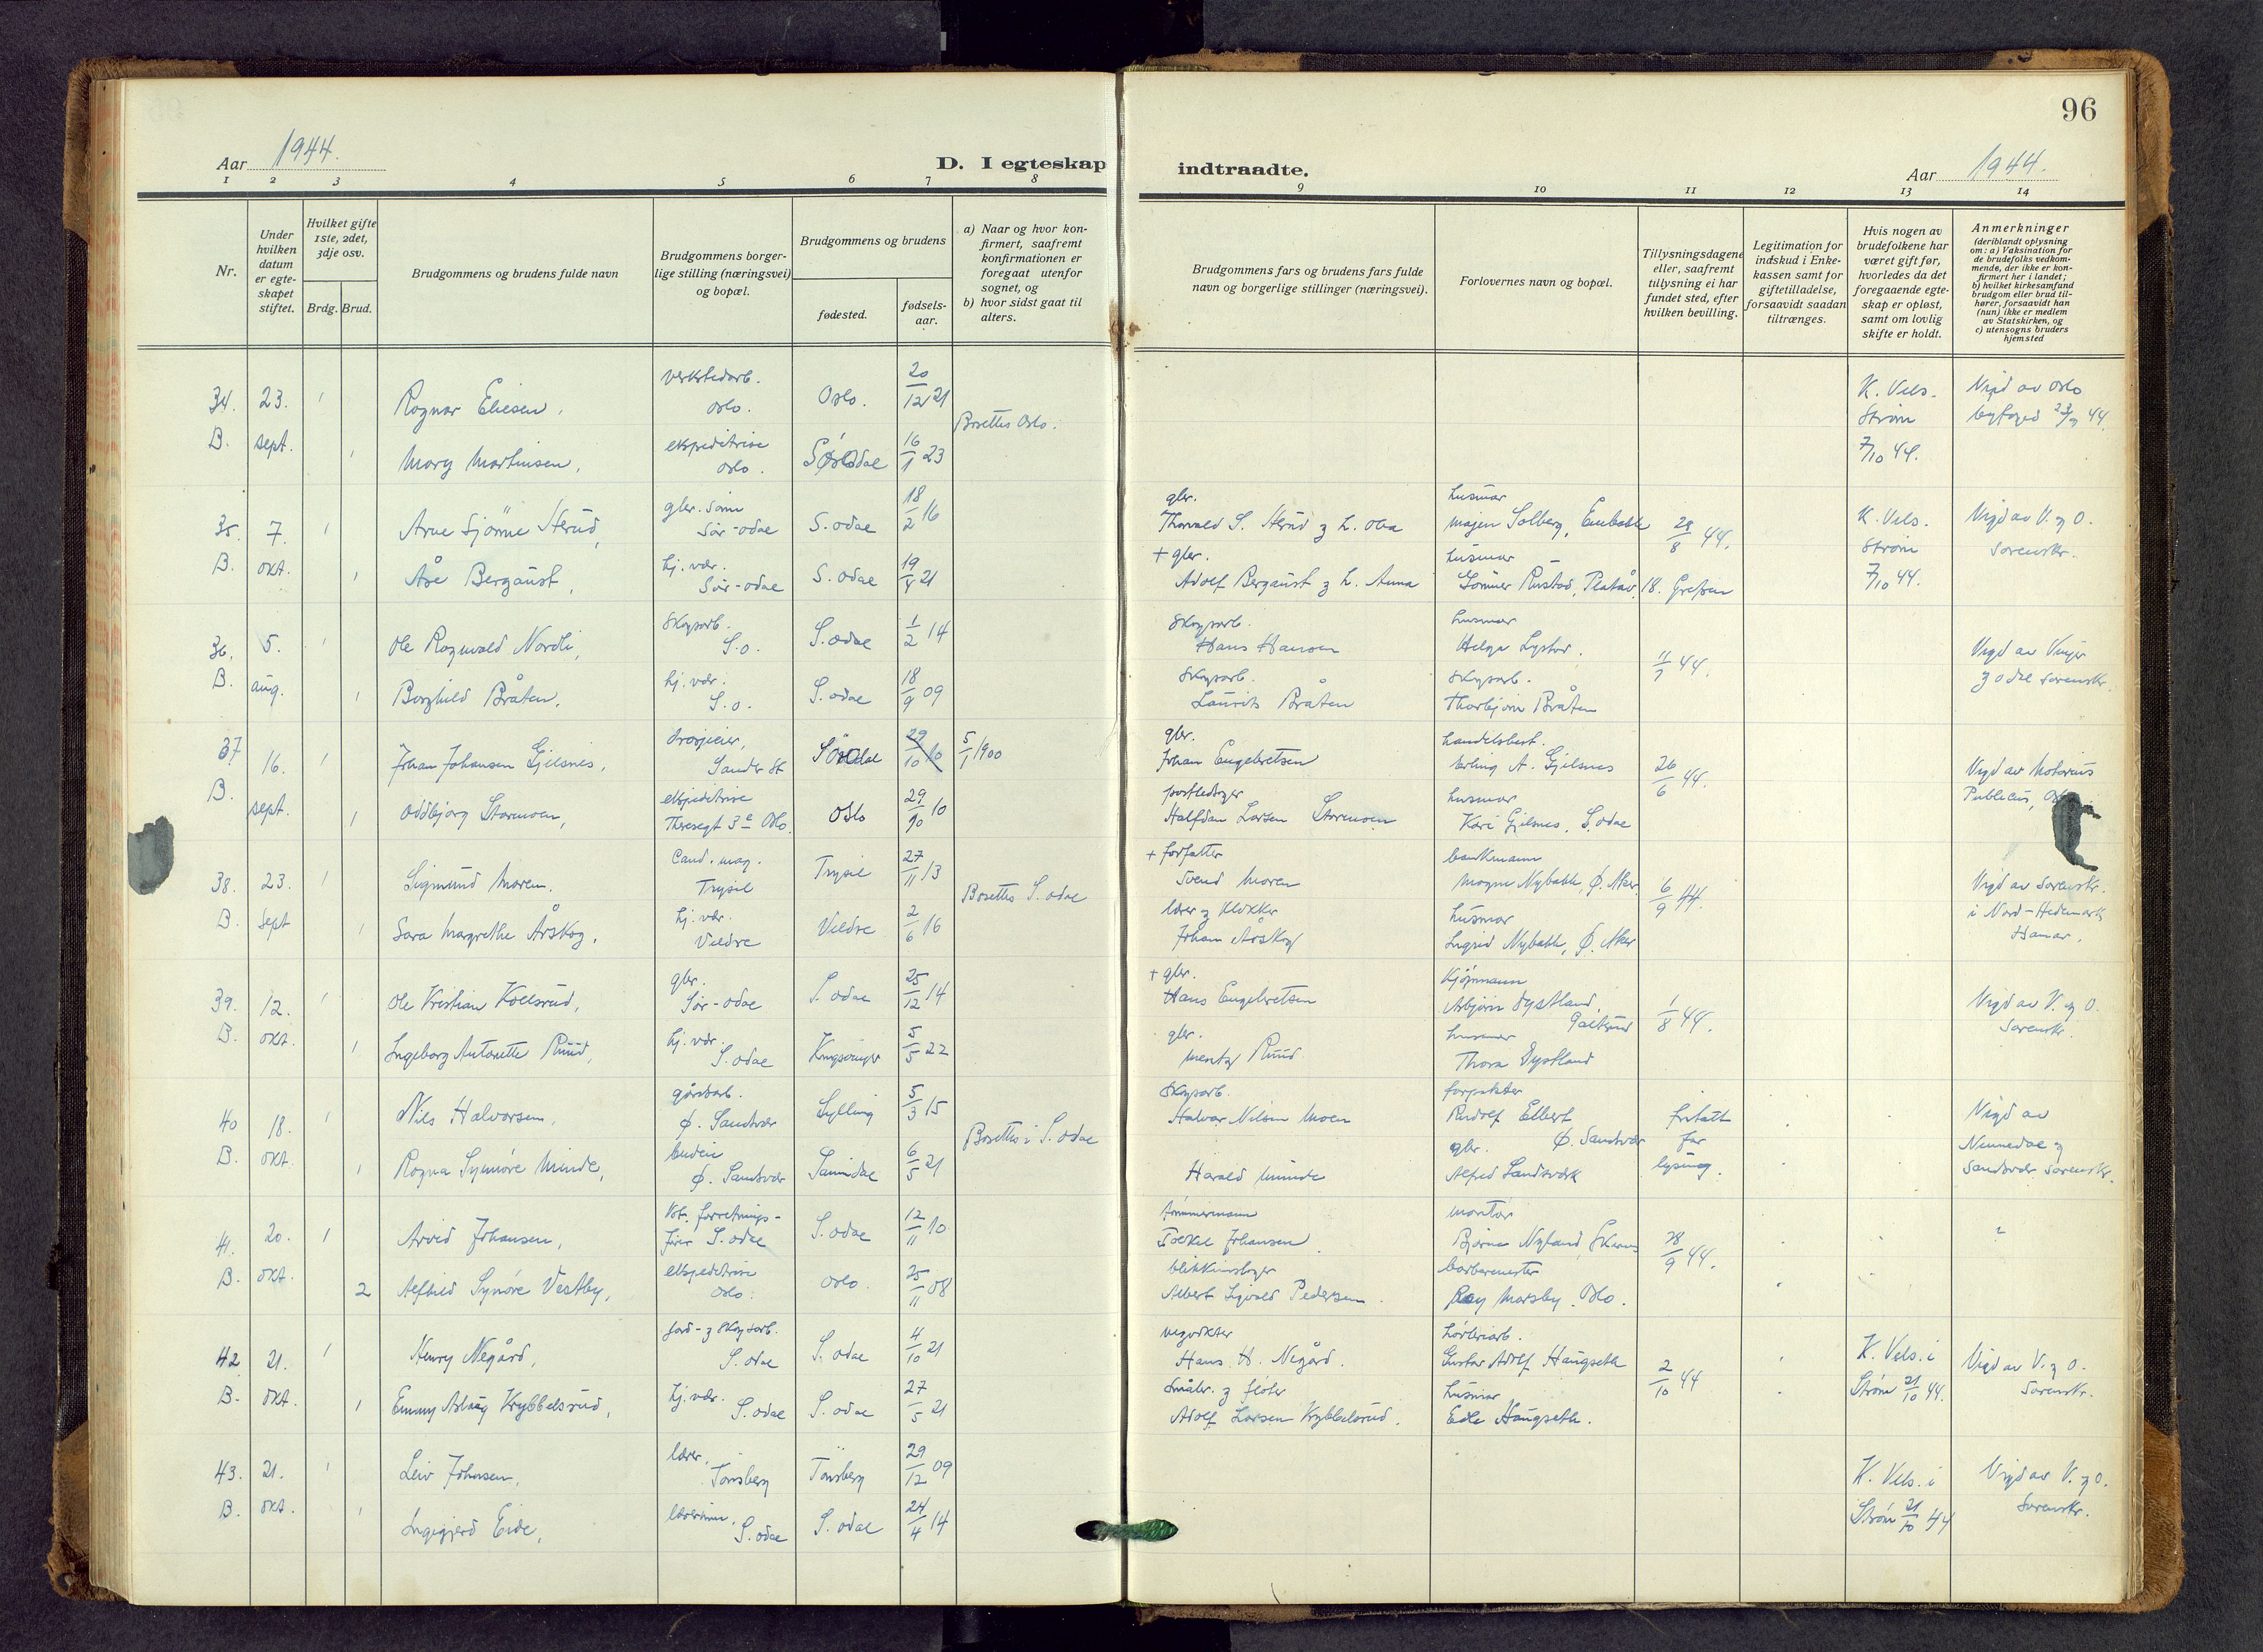 96
Aar 1944.
D. I egteskap indtraadte.
Aar 1944.
1 2 3 4 5 6 7 8 9 10 11 12 13 14
Nr.
Under hvilken datum er egteskapet stiftet.
Hvilket gifte 1ste, 2det, 3dje osv.
Brdg. Brud.
Brudgommens og brudens fulde navn
Brudgommens borgerlige stilling (næringsvei) og bopæl.
Brudgommens og brudens
fødested.
fødselsaar.
a) Naar og hvor konfirmert, saafremt konfirmationen er foregaat utenfor sognet, og
b) hvor sidst gaat til alters.
Brudgommens fars og brudens fars fulde navn og borgerlige stillinger (næringsvei).
Forlovernes navn og bopæl.
Tillysningsdagene eller, saafremt tillysning ei har fundet sted, efter hvilken bevilling.
Legitimation for indskud i Enkekassen samt for giftetilladelse, forsaavidt saadan tiltrænges.
Hvis nogen av brudefolkene har været gift før, hvorledes da det foregaaende egteskap er opløst, samt om lovlig skifte er holdt.
Anmerkninger
(deriblandt oplysning om: a) Vaksination for de brudefolks vedkommende, der ikke er konfirmert her i landet; b) hvilket kirkesamfund brudgom eller brud tilhører, forsaavidt han (hun) ikke er medlem av Statskirken, og c) utensogns bruders hjemsted
34. 23. 1 Ragnar Eliesen, verkstedarb. Oslo. Oslo. 20/12 21 Bosettes Oslo. K. Vels. Strøm 7/10 44. Vigd av Oslo byfoged 23/9 44.
B. sept. 1 Mary Martinsen, ekspeditrise Oslo. S. Odal 16/1 23
35. 7. 1 Arne Sjønne Sterud, gbr. sønn Sør-Odal S. Odal 18/2 16 gbr. Thorvald S. Sterud og h. Olea husmor Majen Solberg, 28/8 44. K. Vels. Strøm 7/10 44. Vigd av V. og O. sorenskr.
B. okt. 1 Åse Bergaust, hj. vær. Sør-Odal S. Odal 19/4 21 + gbr. Adolf Bergaust og h. Anna husmor Gunner Rustad, 18. Grefsen
36. 5. 1 Ole Ragnvald Nordli, Skogsarb. S.o. S. Odal 1/2 14 Skogsarb. Hans Hansen husmor Helga Lystad. 11/7 44. Vigd av Vinger og Odal sorenskr.
B. aug. 1 Borghild Bråten, hj. vær. S.o. S. Odal 18/9 09 Skogsarb. Laurits Bråten Skogsarb. Thorbjørn Bråten
37 16. 1 Johan Johansen Gjelsnes, drosjeeier, Sander St S. Odal 29/10 10 5/1 1900 gbr. Johan Engebretsen handelsbest. Erling A. Gjelsnes 26/6 44. Vigd av Notarius Publicus,
B. sept. 1 Oddbjørg Stormoen, ekspeditrise Theresegt 3e Oslo. Oslo 29/10 10 Halfdan Larsen Stormoen husmor Kari Gjelsnes, S. Odal
38. 23. 1 Sigmund Moren. Cand. mag. Trysil Trysil 27/11 13 Bosettes S. Odal + forfatter Svend Moren bankmann Magne Nybakk, Ø. Aker 6/9 44. Vigd av Sorenskr. i Nord-Hedemark Hamar.
B. sept 1 Sara Margrethe Årskog. hj. vær. Veldre Veldre 2/6 16 lærer og klokker Johan Årskog husmor Ingrid Nybakk, Ø. Aker
39. 12. 1 Ole Kristian Kolsrud, gbr. Sør-Odal S. Odal 25/12 14 + gbr. Hans Engebretsen kjøpmann Asbjørn Dystland, Galterud 1/8 44. Vigd av V. og O. Sorenskr.
B. okt. 1 Ingeborg Antonette Ruud, hj. vær. S. Odal Kongsvinger 5/5 22 gbr. Mentz Ruud husmor Thora Dystland
40 18. 1 Nils Halvorsen, gårdsarb. Ø. Sandsvær Lylling 5/3 15 Bosettes i S. Odal Skogsarb. Halvor Nilsen Moen forpakter Rudolf Elbert Ø. Sandsvær fritatt for lysning. Vigd av Numedal og Sandsvær Sorenskr.
B. okt. 1 Ragna Synnøve Minde, budeie Ø. Sandsvær 6/5 21 Harald Minde gbr. Alfred Sandsverk
41. 20. 1 Arvid Johansen, forretningsfører S. Odal S. Odal 12/11 10 tømmermann Johansen montør Bjarne Nyland, Skarnes 28/9 44.
B. okt. 2 Alfhild Synøve Vestby, ekspeditrise Oslo. Oslo. 25/11 08 blikkenslager Albert Sigvald Pedersen. barbermester Ray Marsby. Oslo.
42 21. 1 Henry Negård, jord- og skogsarb. S. Odal S. Odal 4/10 21 vegvokter Hans H. Negård. Gustav Adolf Haugseth 2/10 44 K. Vels. i Strøm 21/10 44. Vigd av V. og O. Sorenskr.
B. okt. 1 Emmy Aslaug Krybbelsrud, hj. vær. S. Odal S. Odal 27/5 21 Småbr. og fløter Adolf Larsen Krybbelsrud. husmor Edle Haugseth.
43. 21. 1 Leiv Johnsen, lærer, Tønsberg Tønsberg 29/12 09 K. Vels. i Strøm 21/10 44 Vigd av V. og O. Sorenskr.
B. okt. 1 Ingegjerd Eide, lærerinne. S. Odal S. Odal 24/4 14